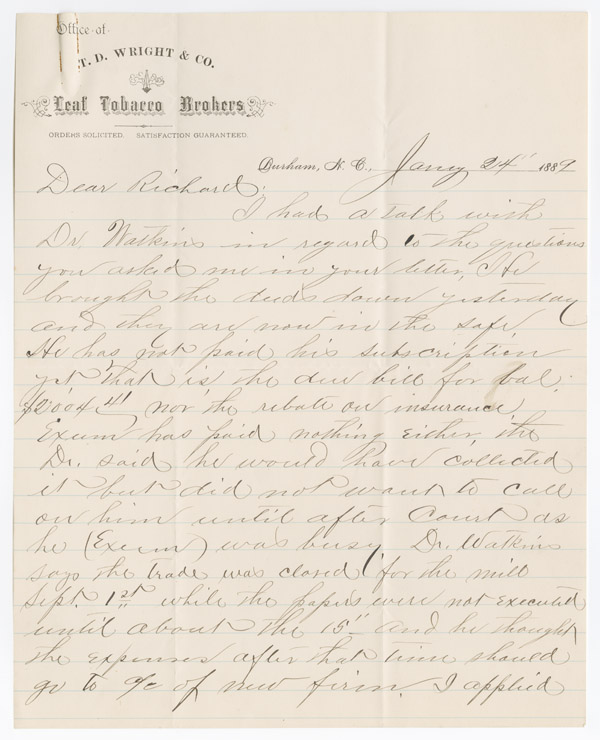 Office of
T. D. WRIGHT & CO.
Leaf Tobacco Brokers
ORDERS SOLICITED. SATISFACTION GUARANTEED.
Durham, N. C., Jany 24" 1889
Dear Richard:
I had a talk with
Dr Watkins in regard to the questions
you asked me in your letter, He
brought the deeds down yesterday
and they are now in the safe.
He has not paid his subscription
yet that is the due bill for bal.
$2004 41 nor the rebate on insurance,
Exum has paid nothing either, the
Dr. said he would have collected
it but did not want to call
on him until after Court as
he (Exum) was busy. Dr. Watkins
says the trade was closed for the mill
Sept. 1st while the papers were not executed
until about the 15" and he thought
the expenses after that time should
go to a/c of new firm. I applied